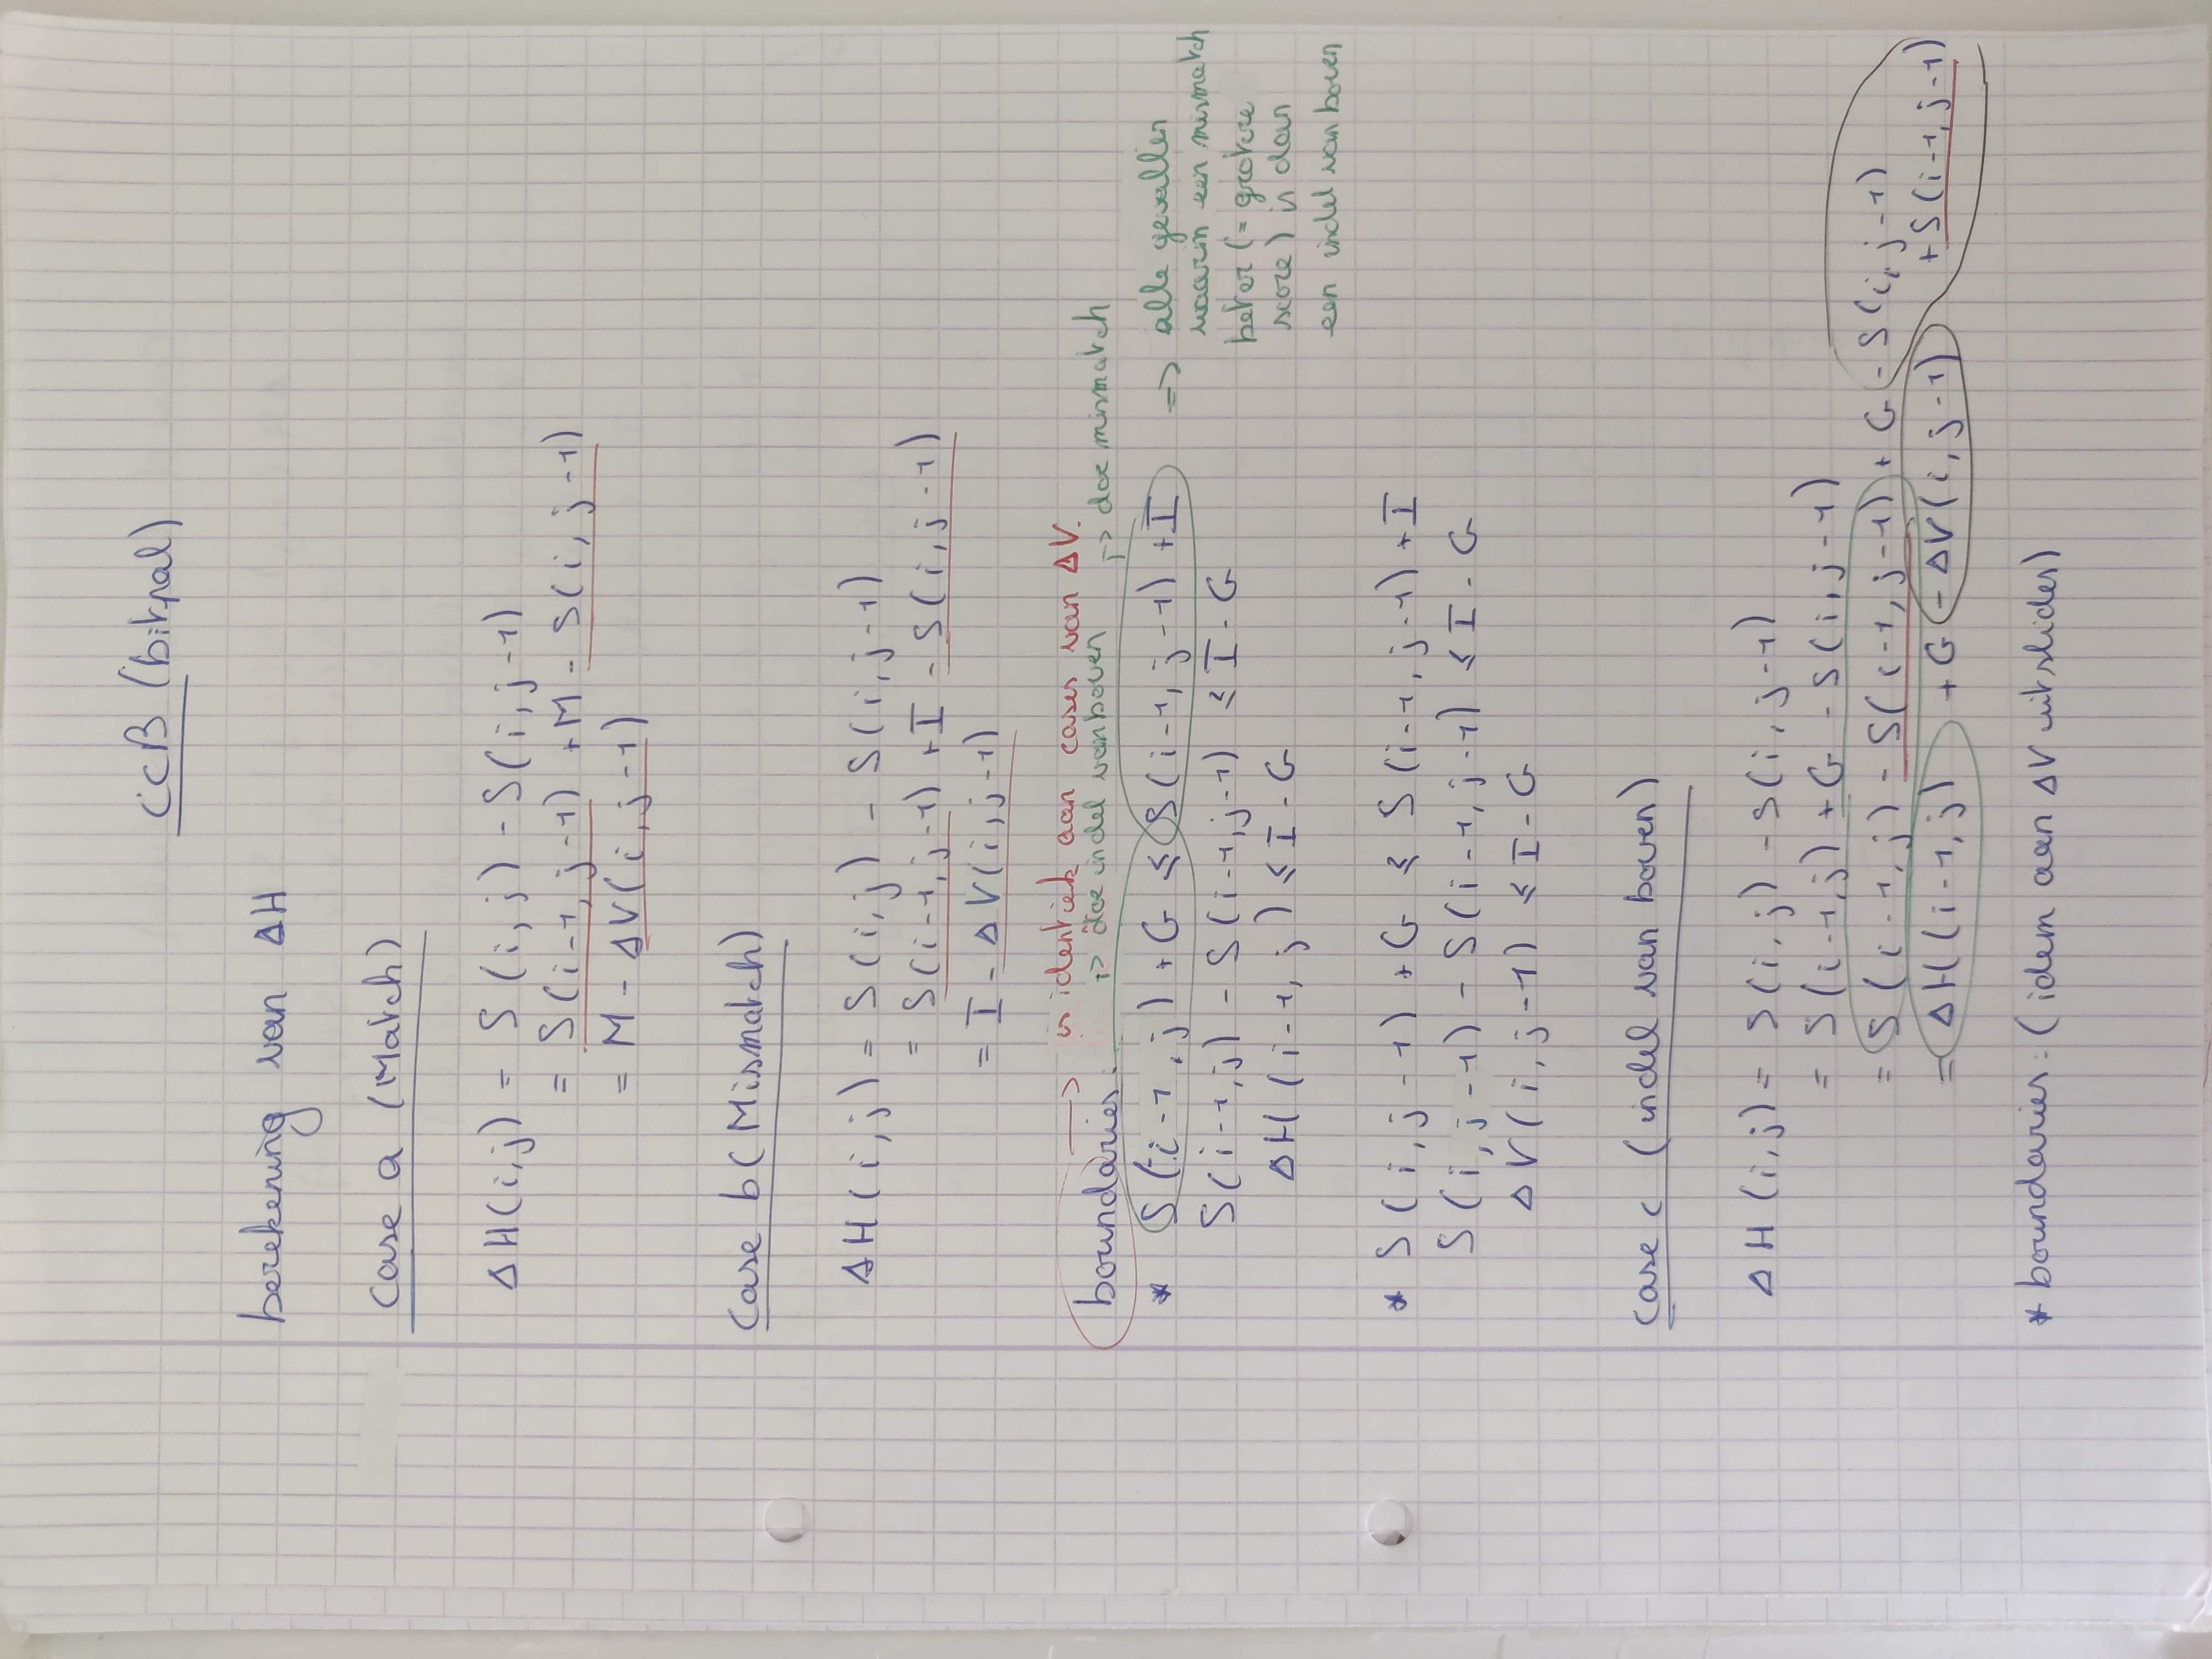 CCB (bitpal)
berekening van ΔH
Case a (Match)
ΔH(i,j) = S(i,j) - S(i,j-1)
= S(i-1,j-1) + M - S(i,j-1)
= M - ΔV(i,j-1)
Case b (Mismatch)
ΔH(i,j) = S(i,j) - S(i,j-1)
= S(i-1,j-1) + I - S(i,j-1)
= I - ΔV(i,j-1)
boundaries: → is identiek aan cases van ΔV.
↱ doe indel van boven ↱ doe mismatch
* S(i-1,j) + G ≤ S(i-1,j-1) + I => alle gevallen
waarin een mismatch
beter (= grotere
score) is dan
een indel van boven
S(i-1,j) - S(i-1,j-1) ≤ I - G
ΔH(i-1,j) ≤ I - G
* S(i,j-1) + G ≤ S(i-1,j-1) + I
S(i,j-1) - S(i-1,j-1) ≤ I - G
ΔV(i,j-1) ≤ I - G
Case c (indel van boven)
ΔH(i,j) = S(i,j) - S(i,j-1)
= S(i-1,j) + G - S(i,j-1)
= S(i-1,j) - S(i-1,j-1) + G - S(i,j-1)
+ S(i-1,j-1)
= ΔH(i-1,j) + G - ΔV(i,j-1)
* boundaries: (idem aan ΔV uit slides)